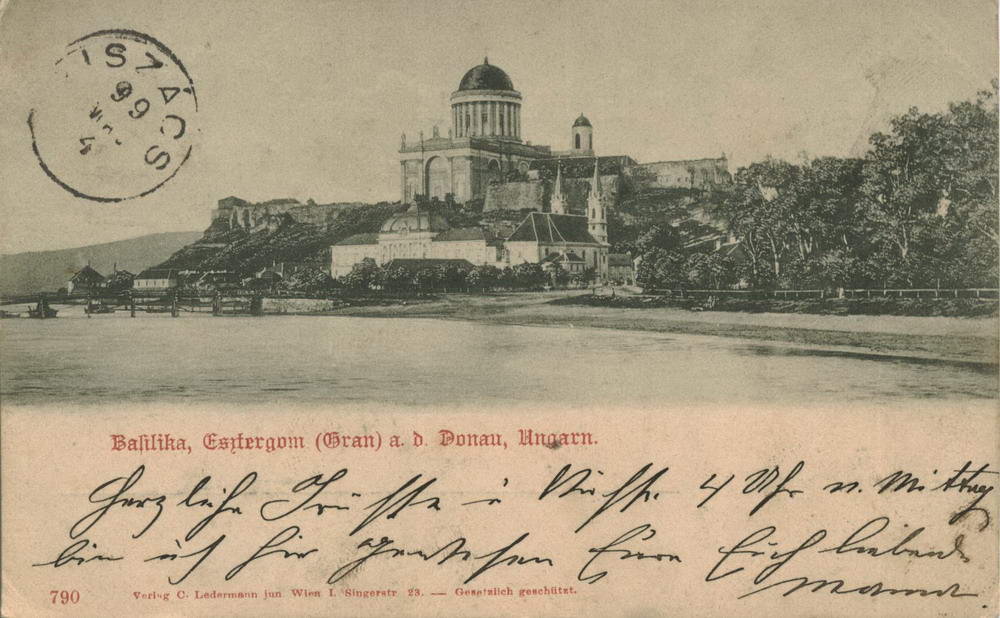 ISZÁCS
99
4
Basilika, Esztergom (Gran) a. d. Donau, Ungarn.
Herzliche Grüsse u Küsse. 4 Uhr n. Mittag
bin ich hier Eure Euch liebende
Mama.
790 Verlag C. Ledermann jun. Wien I. Singerstr. 23. — Gesetzlich geschützt.